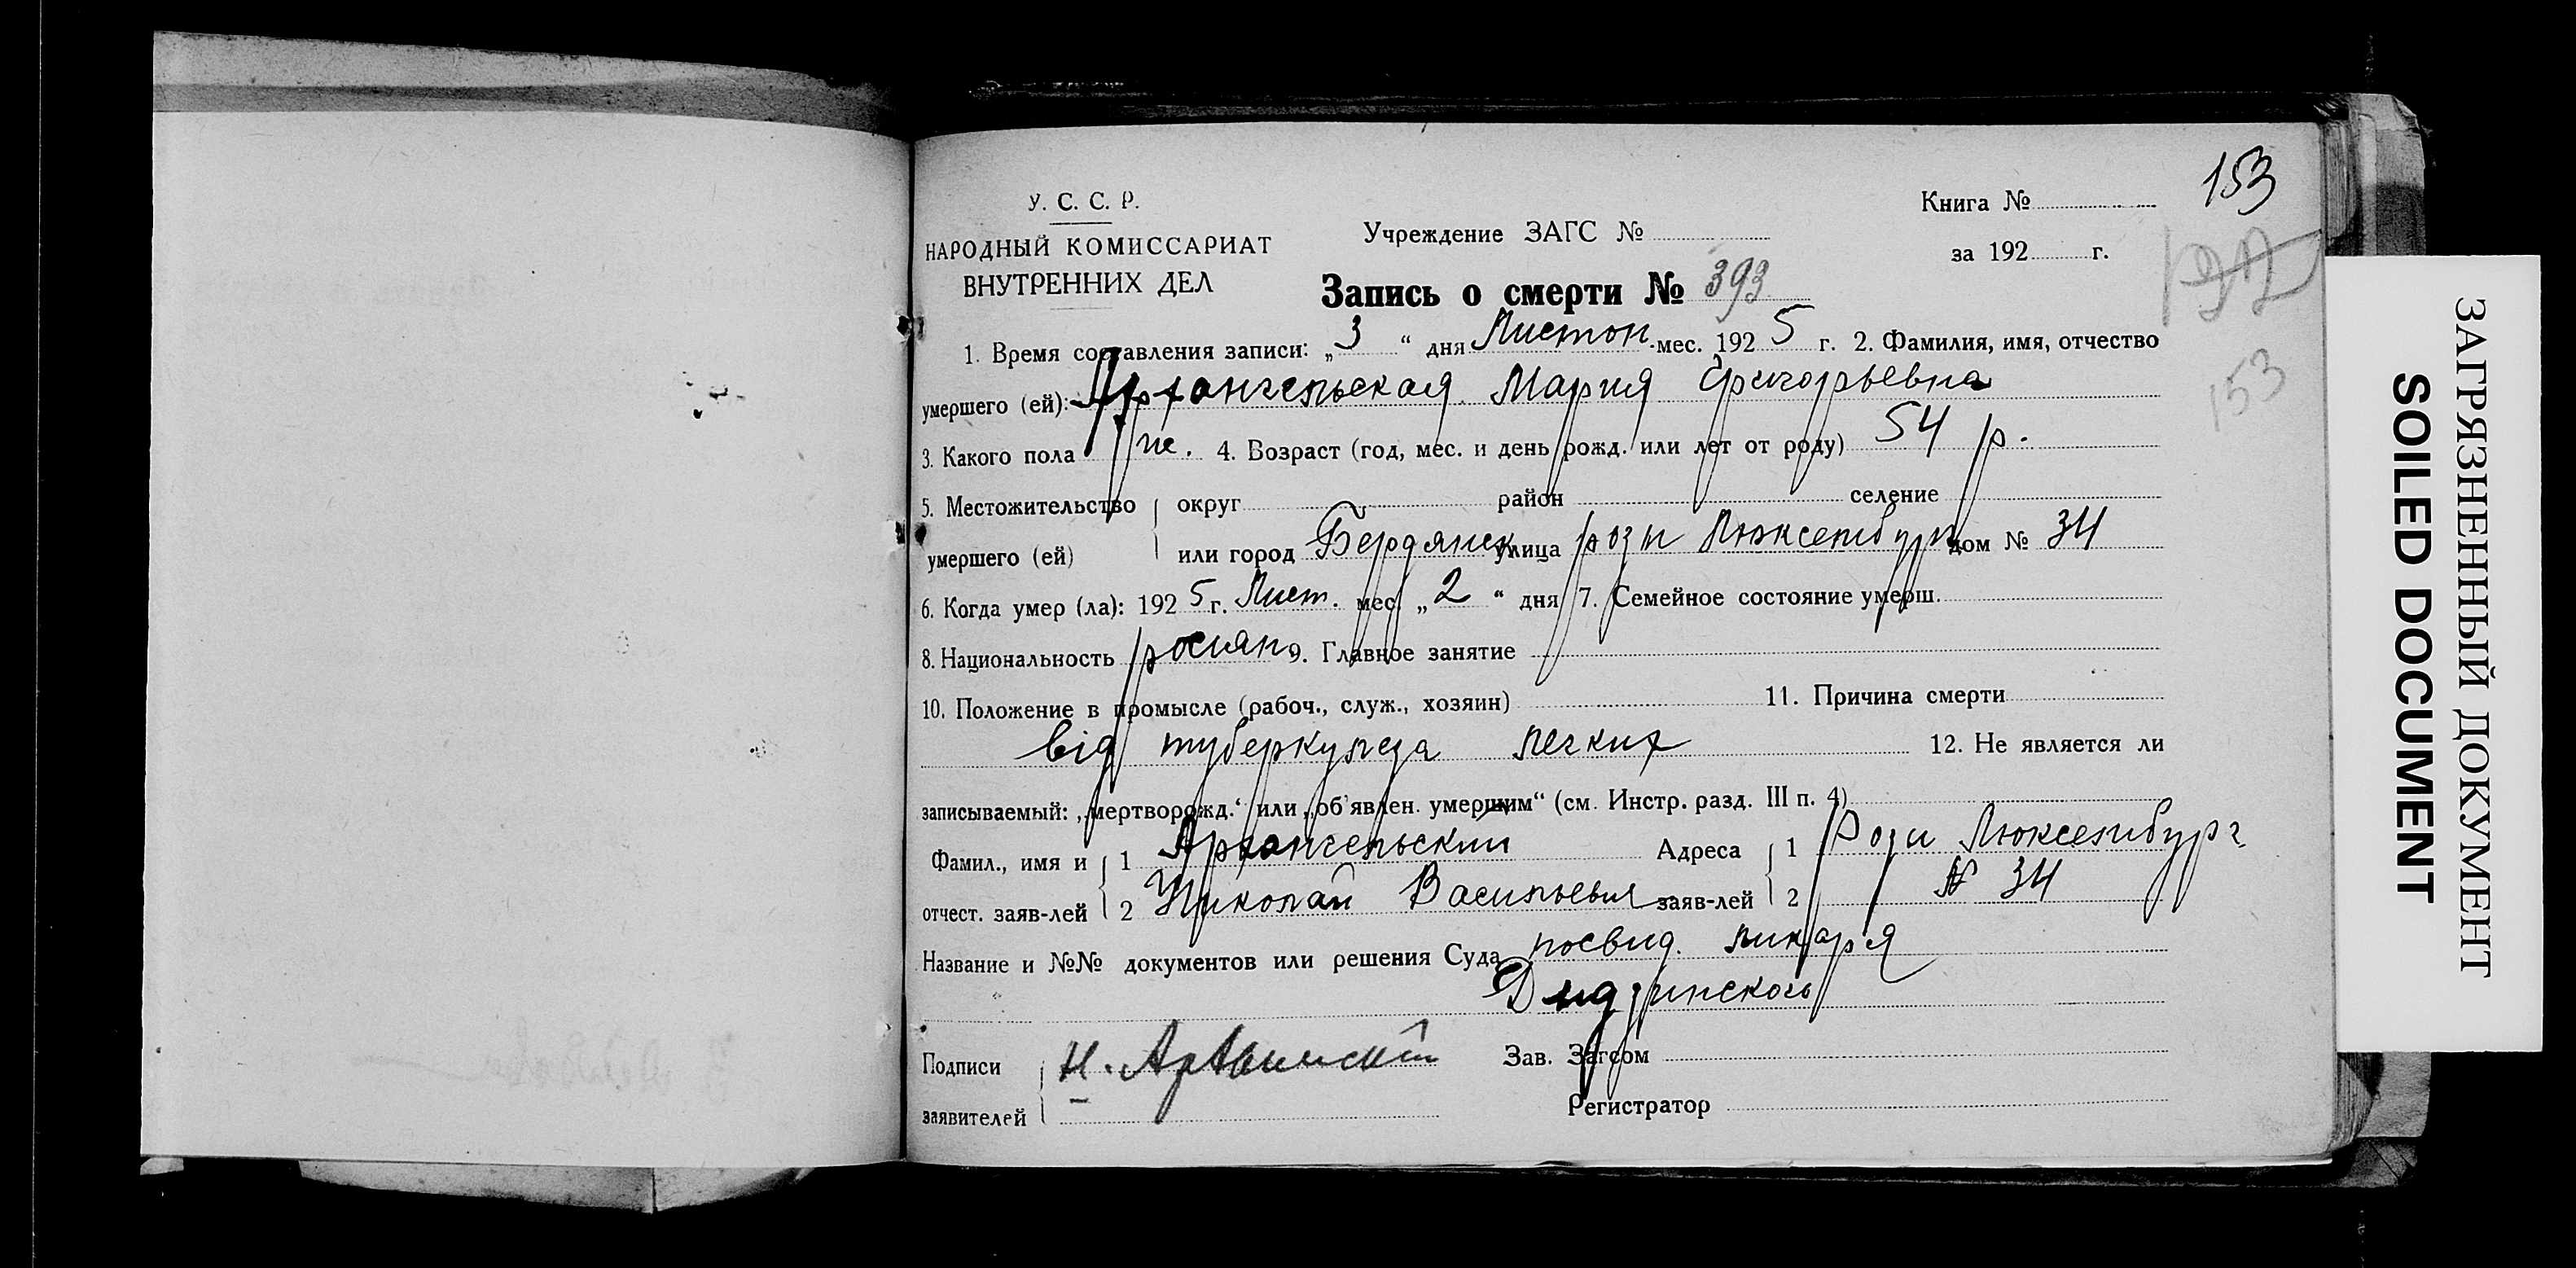 У. С. С. Р.
НАРОДНЫЙ КОМИССАРИАТ
ВНУТРЕННИХ ДЕЛ
Учреждение ЗАГС №
Книга №
за 192 г.
153
153
Запись о смерти № 393
1. Время составления записи: „3“ дня Листоп. мес. 1925 г. 2. Фамилия, имя, отчество
умершего (ей): Архангельская Мария Григорьевна
3. Какого пола ж. 4. Возраст (год, мес. и день рожд. или лет от роду) 54 р.
5. Местожительство округ район селение
умершего (ей) или город Бердянск улица Рози Люксембург дом № 34
6. Когда умер (ла): 1925 г. Лист. мес. „2“ дня 7. Семейное состояние умерш.
8. Национальность росіян. 9. Главное занятие
10. Положение в промысле (рабоч., служ., хозяин) 11. Причина смерти
від туберкульоза легких 12. Не является ли
записываемый: „мертворожд.“ или „об'явлен. умершим“ (см. Инстр. разд. III п. 4)
Фамил., имя и 1 Архангельский Адреса 1 Рози Люксембург
отчест. заяв-лей 2 Николай Васильевич заяв-лей 2 № 34
Название и №№ документов или решения Суда посвид. ликаря
Подписи
заявителей
Зав. Загсом
Регистратор
ЗАГРЯЗНЕННЫЙ ДОКУМЕНТ
SOILED DOCUMENT